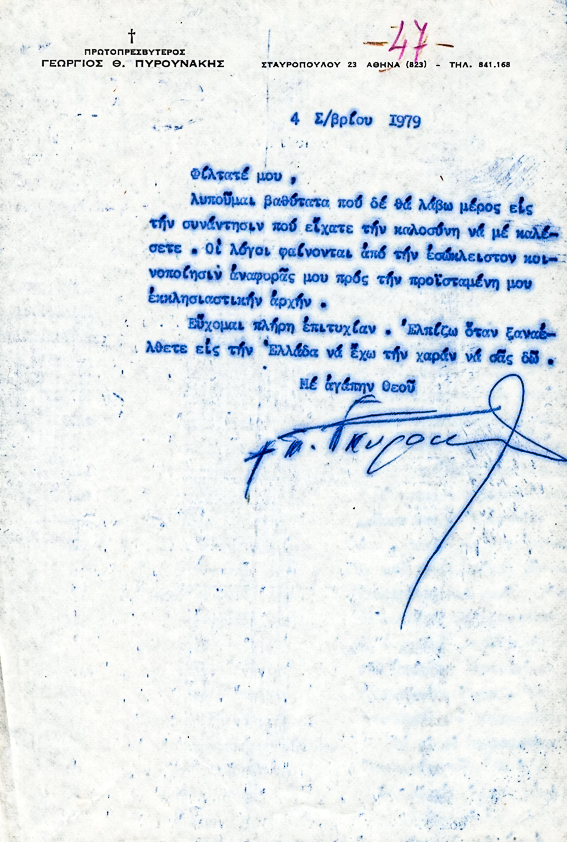 -47-
†
ΠΡΩΤΟΠΡΕΣΒΥΤΕΡΟΣ
ΓΕΩΡΓΙΟΣ Θ. ΠΥΡΟΥΝΑΚΗΣ
ΣΤΑΥΡΟΠΟΥΛΟΥ 23 ΑΘΗΝΑ (823) - ΤΗΛ. 841.168
4 Σ/βρίου 1979
Φίλτατέ μου ,
λυποῦμαι βαθύτατα πού δέ θά λάβω μέρος εἰς
τήν συνάντησιν πού εἴχατε τήν καλοσύνη νά μέ καλέ-
σετε . Οἱ λόγοι φαίνονται ἀπό τήν ἐσώκλειστον κοι-
νοποίησιν ἀναφορᾶς μου πρός τήν προϊσταμένη μου
ἐκκλησιαστικήν ἀρχήν .
Εὔχομαι πλήρη ἐπιτυχίαν . Ἐλπίζω ὅταν ξαναέ-
λθετε εἰς τήν Ἑλλάδα νά ἔχω τήν χαράν νά σᾶς δῶ .
Μέ ἀγάπην Θεοῦ